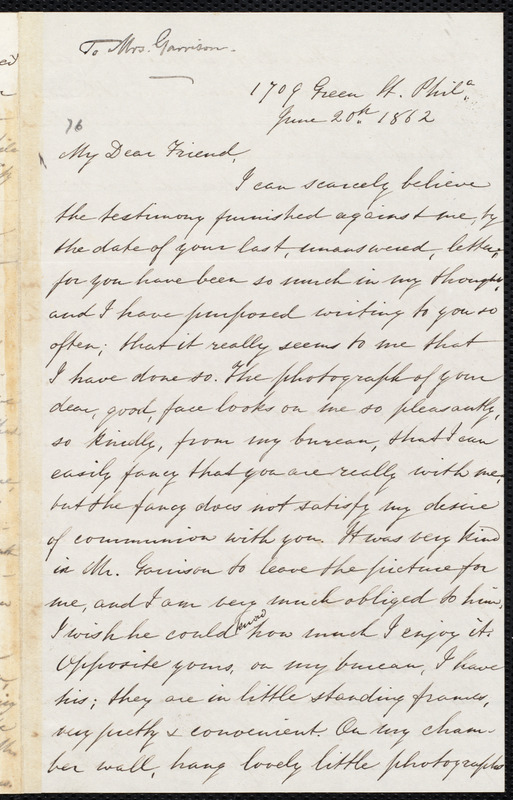 To Mrs. Garrison.
1709 Green St. Phil.a
June 20th. 1862
76
My Dear Friend,
I can scarcely believe
the testimony furnished against me, by
the date of your last, unanswered, letter,
for you have been so much in my thoughts,
and I have purposed writing to you so
often; that it really seems to me that
I have done so. The photograph of your
dear, good, face looks on me so pleasantly,
so kindly, from my bureau, that I can
easily fancy that you are really with me,
but the fancy does not satisfy my desire
of communion with you. It was very kind
in Mr. Garrison to leave the picture for
me, and I am very much obliged to him.
I wish he could know how much I enjoy it.
Opposite yours, on my bureau, I have
his; they are in little standing frames,
very pretty & convenient. On my cham-
ber wall, hang lovely little photographs